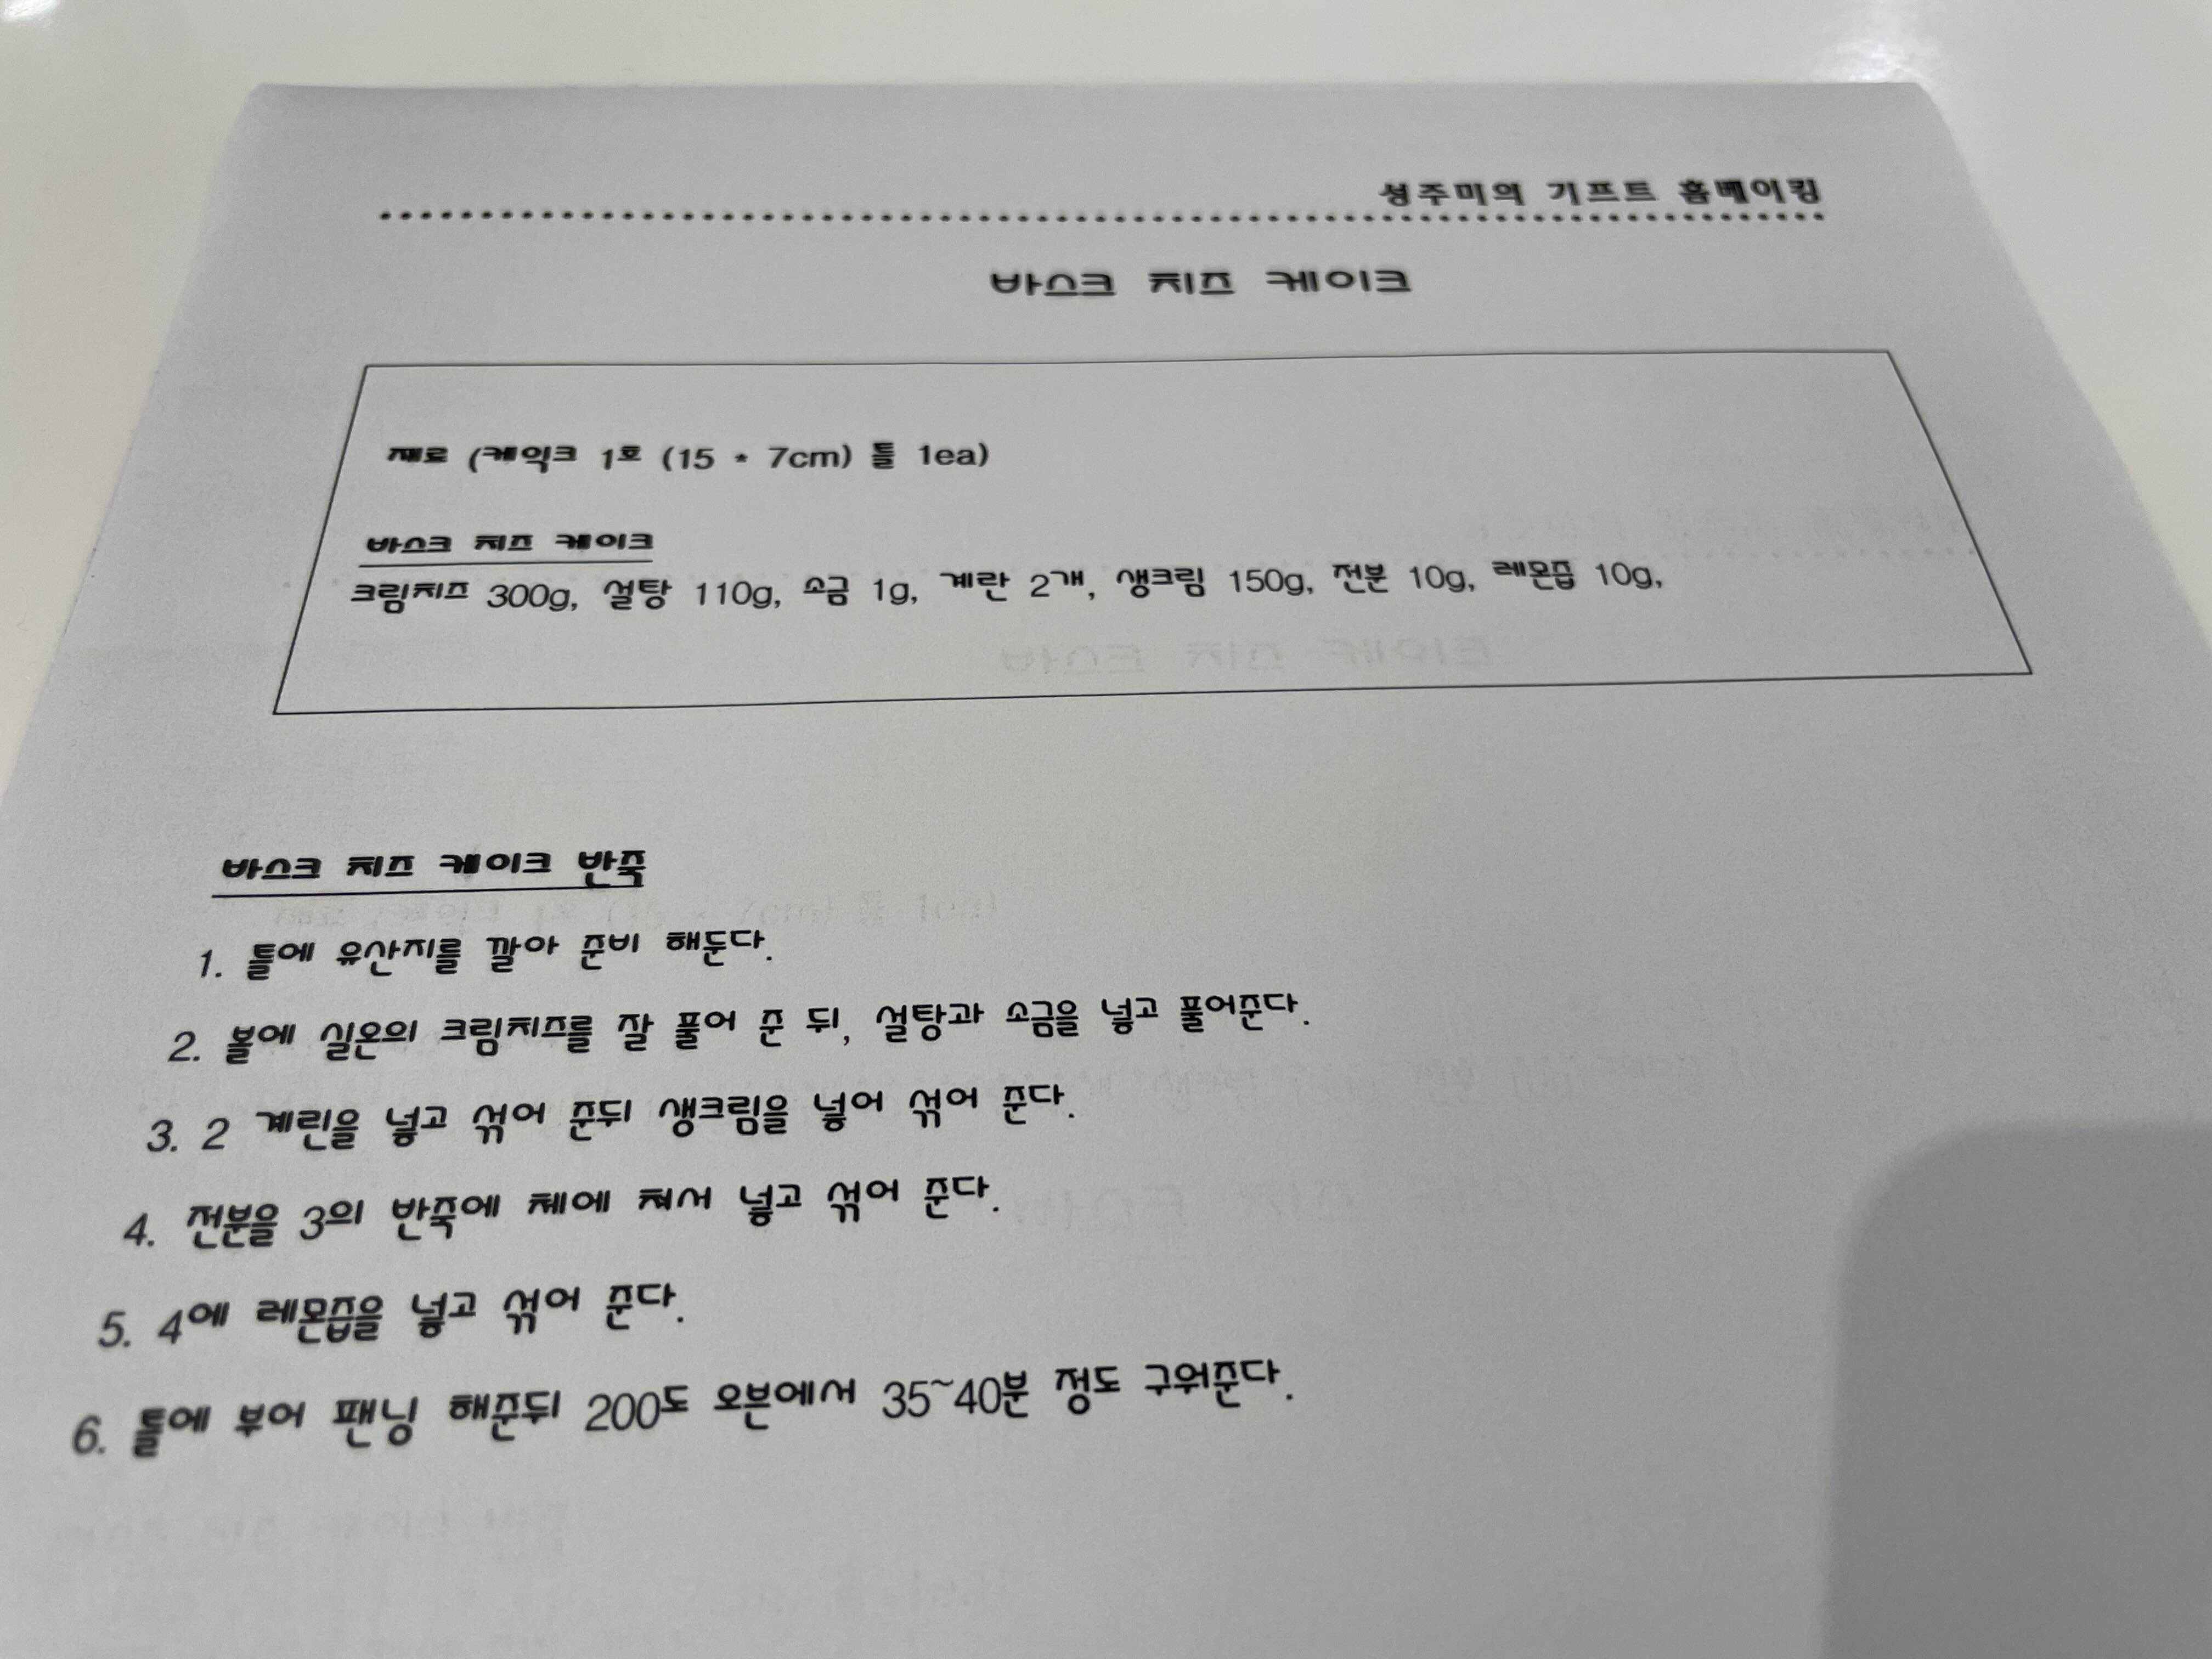 성주미의 기프트 홈베이킹
바스크 치즈 케이크
재료 (케익크 1호 (15 * 7cm) 틀 1ea)
바스크 치즈 케이크
크림치즈 300g, 설탕 110g, 소금 1g, 계란 2개, 생크림 150g, 전분 10g, 레몬즙 10g,
바스크 치즈 케이크 반죽
1. 틀에 유산지를 깔아 준비 해둔다.
2. 볼에 실온의 크림치즈를 잘 풀어 준 뒤, 설탕과 소금을 넣고 풀어준다.
3. 2 계린을 넣고 섞어 준뒤 생크림을 넣어 섞어 준다.
4. 전분을 3의 반죽에 체에 쳐서 넣고 섞어 준다.
5. 4에 레몬즙을 넣고 섞어 준다.
6. 틀에 부어 팬닝 해준뒤 200도 오븐에서 35~40분 정도 구워준다.